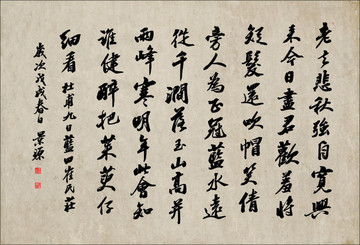 老去悲秋強自寬興
来今日盡君歡羞將
短髮還吹帽笑倩
旁人為正冠藍水遠
從千澗落玉山高并
兩峰寒明年此會知
誰健醉把茱萸仔
細看 杜甫九日藍田崔氏莊
歲次戊戌春日 景源